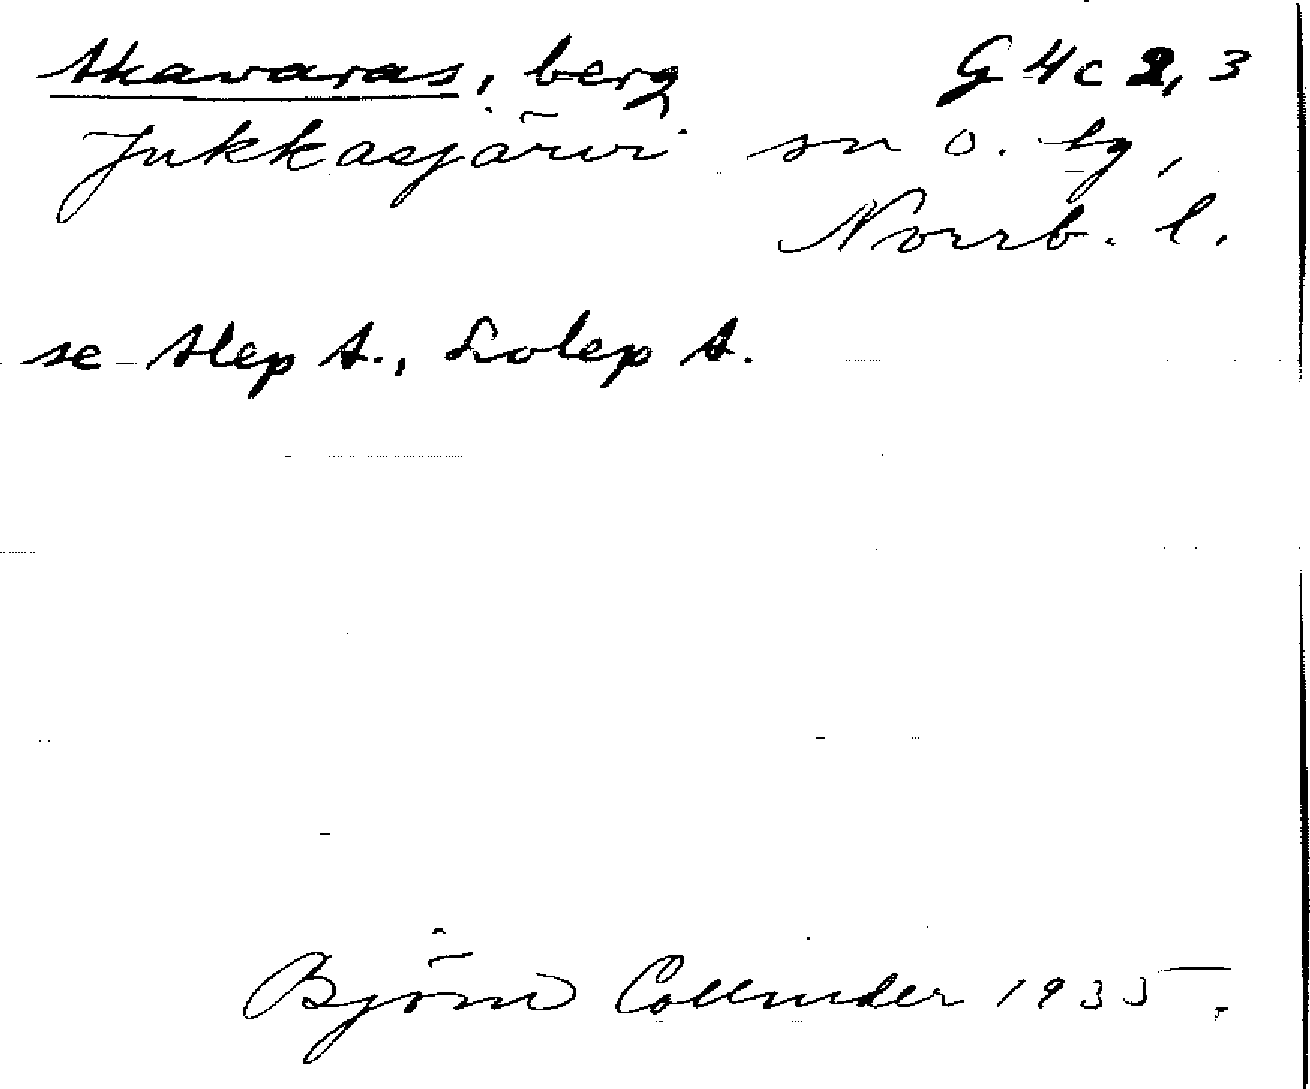 Skavaras, berg G 4c 2, 3
Jukkasjärvi sn o. tg,
Norrb. l.
se Slep S., Lolep S.
Björn Collinder 1935.